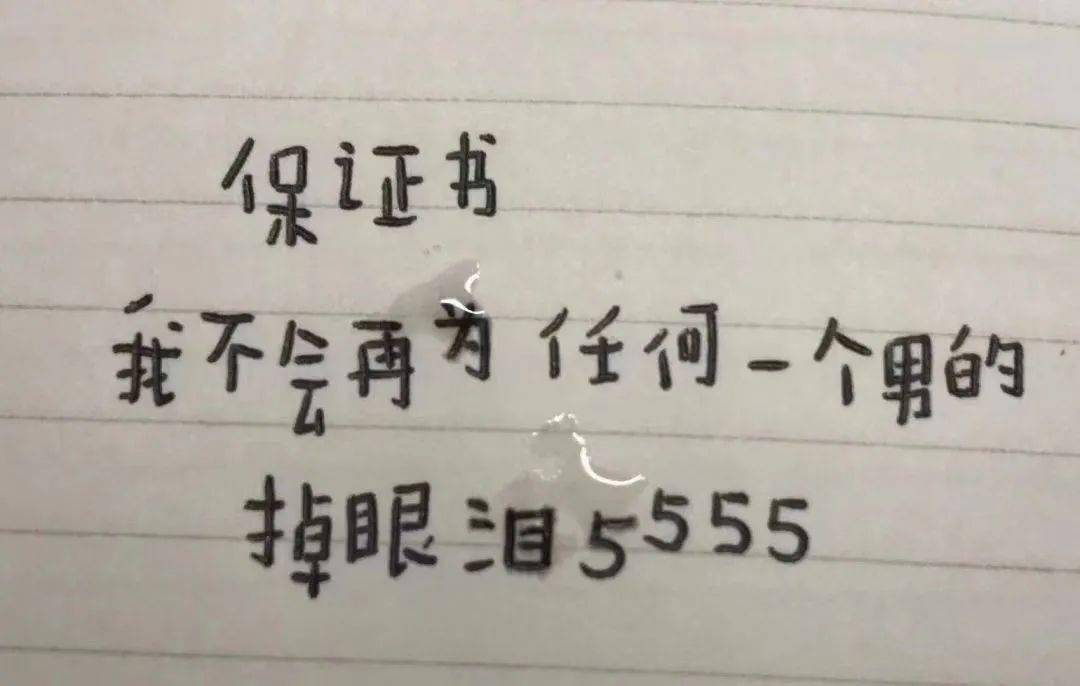 保证书
我不会再为任何一个男的
掉眼泪5555